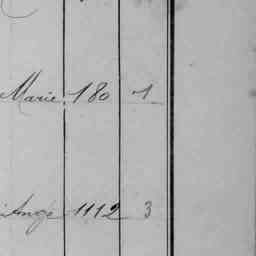 Marie 180 1
Ange 1112 3